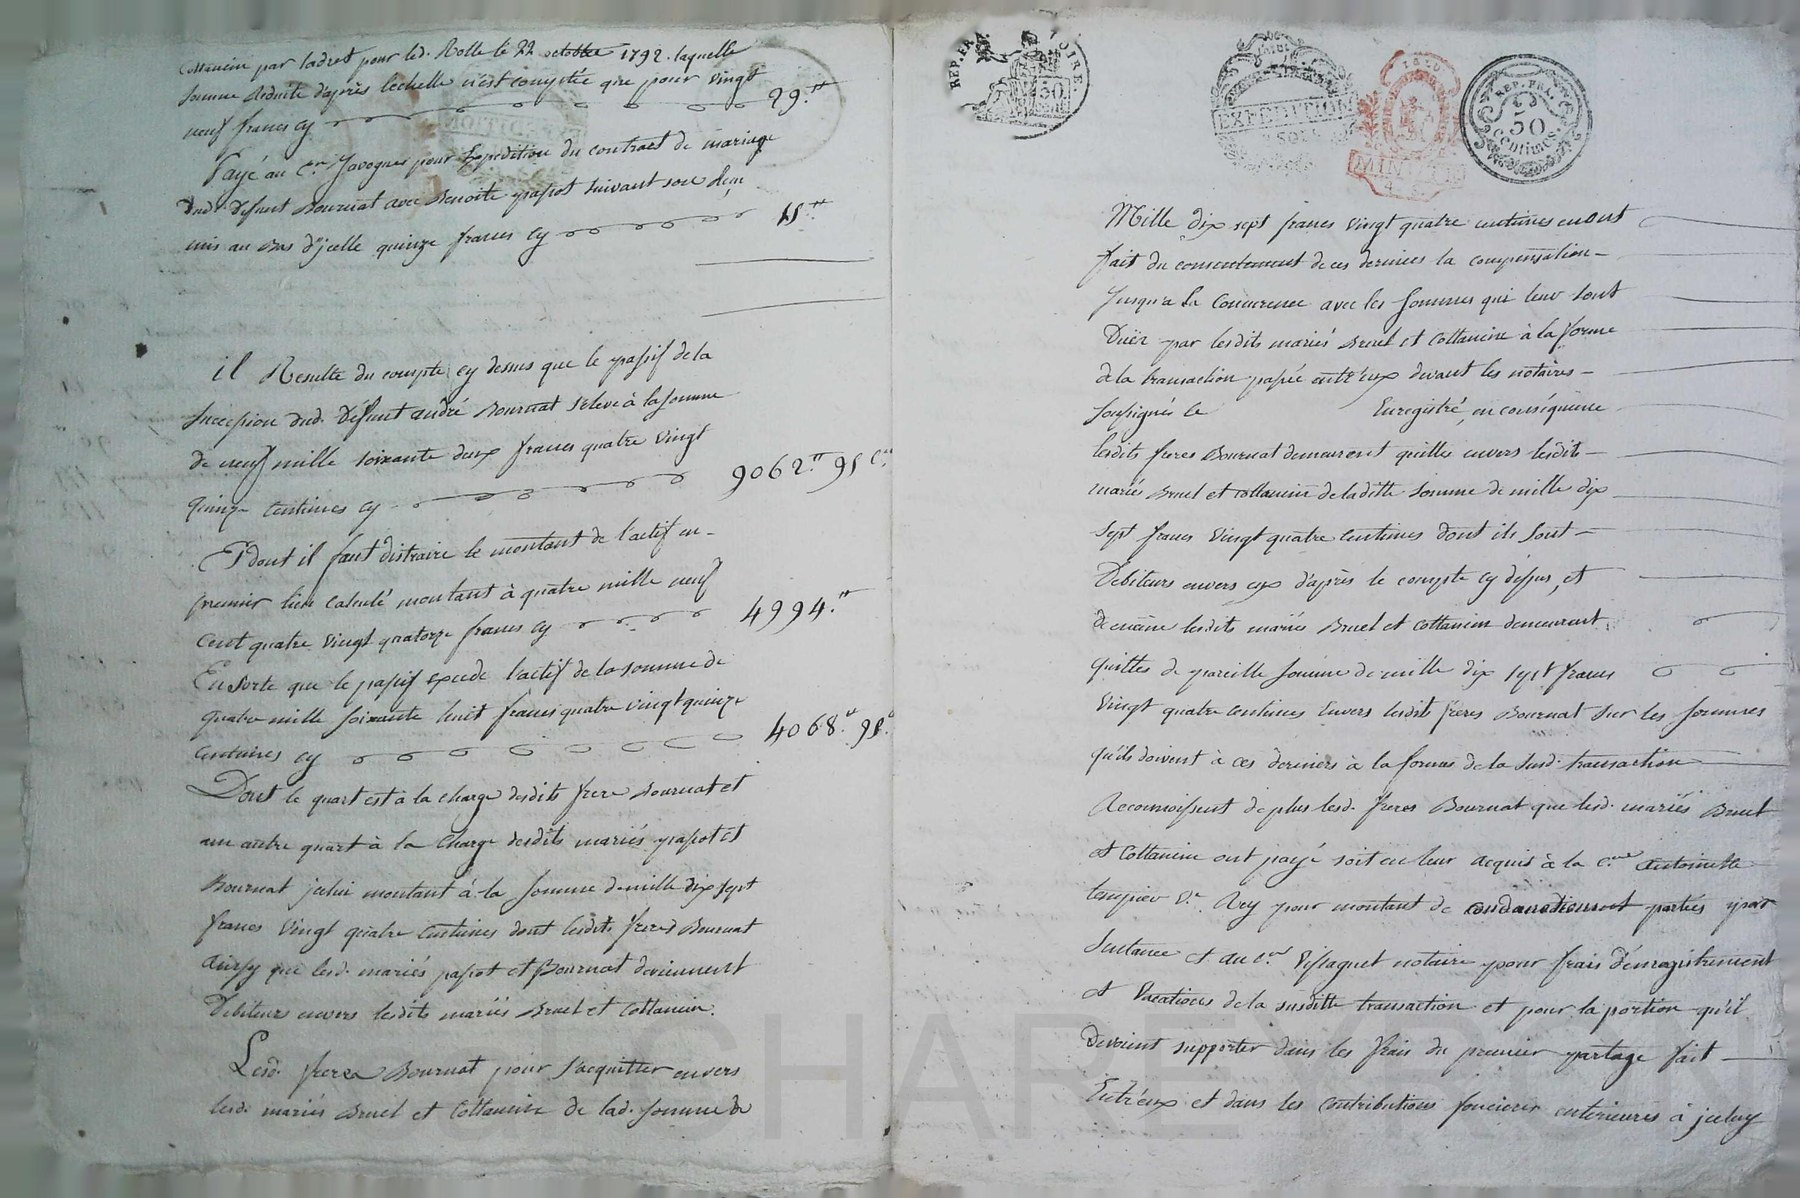 Cottancin par ladret pour led. Rolle le 22 octobre 1792. laquelle
somme Reduite d'après l'echelle n'est comptée que pour vingt
neuf francs cy 29.
Payé au C.en Javogues pour Expedition du contract de mariage
dud. Defunt Bournat avec Benoite papot suivant son Reçu
mis au Bas d'jcelle quinze francs cy 15.
il Resulte du compte cy dessus que le passif de la
succession dud. Defunt andré Bournat s'eleve à la somme
de neuf mille soixante deux francs quatre vingt
quinze Centimes cy 9062. 95 C.
Et dont il faut distraire le montant de l'actif en
premier lieu calculé montant à quatre mille neuf
cent quatre vingt quatorze francs cy 4994.
En sorte que le passif excede l'actif de la somme de
quatre mille soixante huit francs quatre vingt quinze
centimes cy 4068. 95.
Dont le quart est à la charge desdits frere Bournat et
un autre quart à la charge desdits mariés papot et
Bournat jcelui montant à la somme de mille dix sept
francs vingt quatre centimes dont lesdits freres Bournat
ainsy que lesd. mariés papot et Bournat deviennent
Debiteurs envers lesdits mariés Bruel et Cottancin.
Lesd. freres Bournat pour s'acquitter envers
lesd. mariés Bruel et Cottancin de lad. somme de
REP. FRA.
50
EXPEDITION
MINUTE
REP. FRA.
50
Centimes.
Mille dix sept francs vingt quatre centimes en ont
fait du consentement de ces derniers la compensation
jusqu'a la concurrence avec les sommes qui leur sont
Dües par lesdits mariés Bruel et Cottancin à la forme
de la transaction passée entr'eux devant les notaires
soussignés le Enregistré, en conséquence
lesdits freres Bournat demeurent quittes envers lesdits
mariés Bruel et Cottancin de laditte somme de mille dix
sept francs vingt quatre centimes dont ils sont
Débiteurs envers eux d'après le compte cy dessus, et
de même lesdits mariés Bruel et Cottancin demeurent
quittes de pareille somme de mille dix sept francs
vingt quatre centimes Envers lesdits freres Bournat sur les sommes
qu'ils doivent à ces derniers à la forme de la susd. transaction
Reconnoissent de plus lesd. freres Bournat que lesd. mariés Bruel
et Cottancin ont payé soit en leur acquis à la C.ne antoinette
V.e Rey pour montant de portées par
sentance et au C.en notaire pour frais d'enregistrement
et vacations de la susditte transaction et pour la portion qu'il
devoient supporter dans les frais du premier partage fait
Entr'eux et dans les contributions foncieres anterieures à jceluy
CHAREYRON